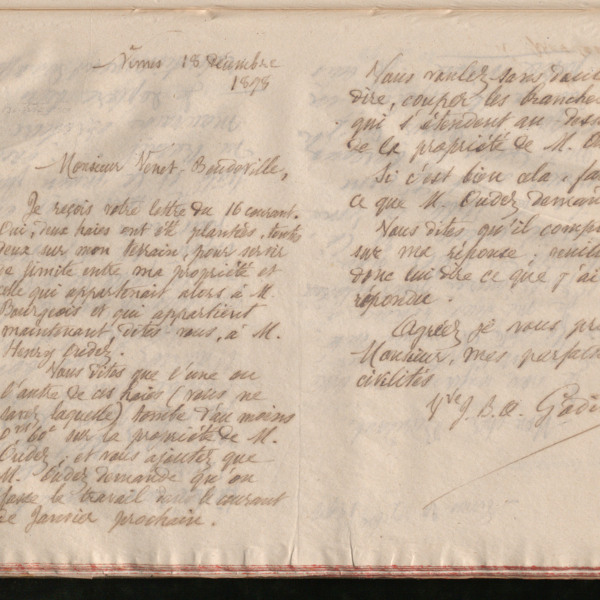 Nîmes 18 décembre
1878
Monsieur Venet, Boudoville,
Je reçois votre lettre du 16 courant.
Oui, aux haies ont été plantées, toutes
deux sur mon terrain, pour servir
de limite entre ma propriété et
celle qui appartenait alors à M.
Bourgeois et qui appartient
maintenant, dites-vous, à M.
Henry Oudez.
Vous dites que l'une ou
l'autre de ces haies (vous ne
savez laquelle) tombe d'au moins
0m 60c sur la propriété de M.
Oudez, et vous ajoutez que
M. Oudez demande qu'on
fasse le travail dans le courant
de Janvier prochain.
Vous voulez sans dou
dire, couper les branches
qui s'étendent au dess
de la propriété de M. O
Si c'est bien cela, fa
ce que M. Oudez deman
Vous dites qu'il comp
sur ma réponse ; veuil
donc lui dire ce que j'ai
répondu.
Agréez je vous pr
Monsieur, mes parfaites
civilités
Vve J. B. A. Godi